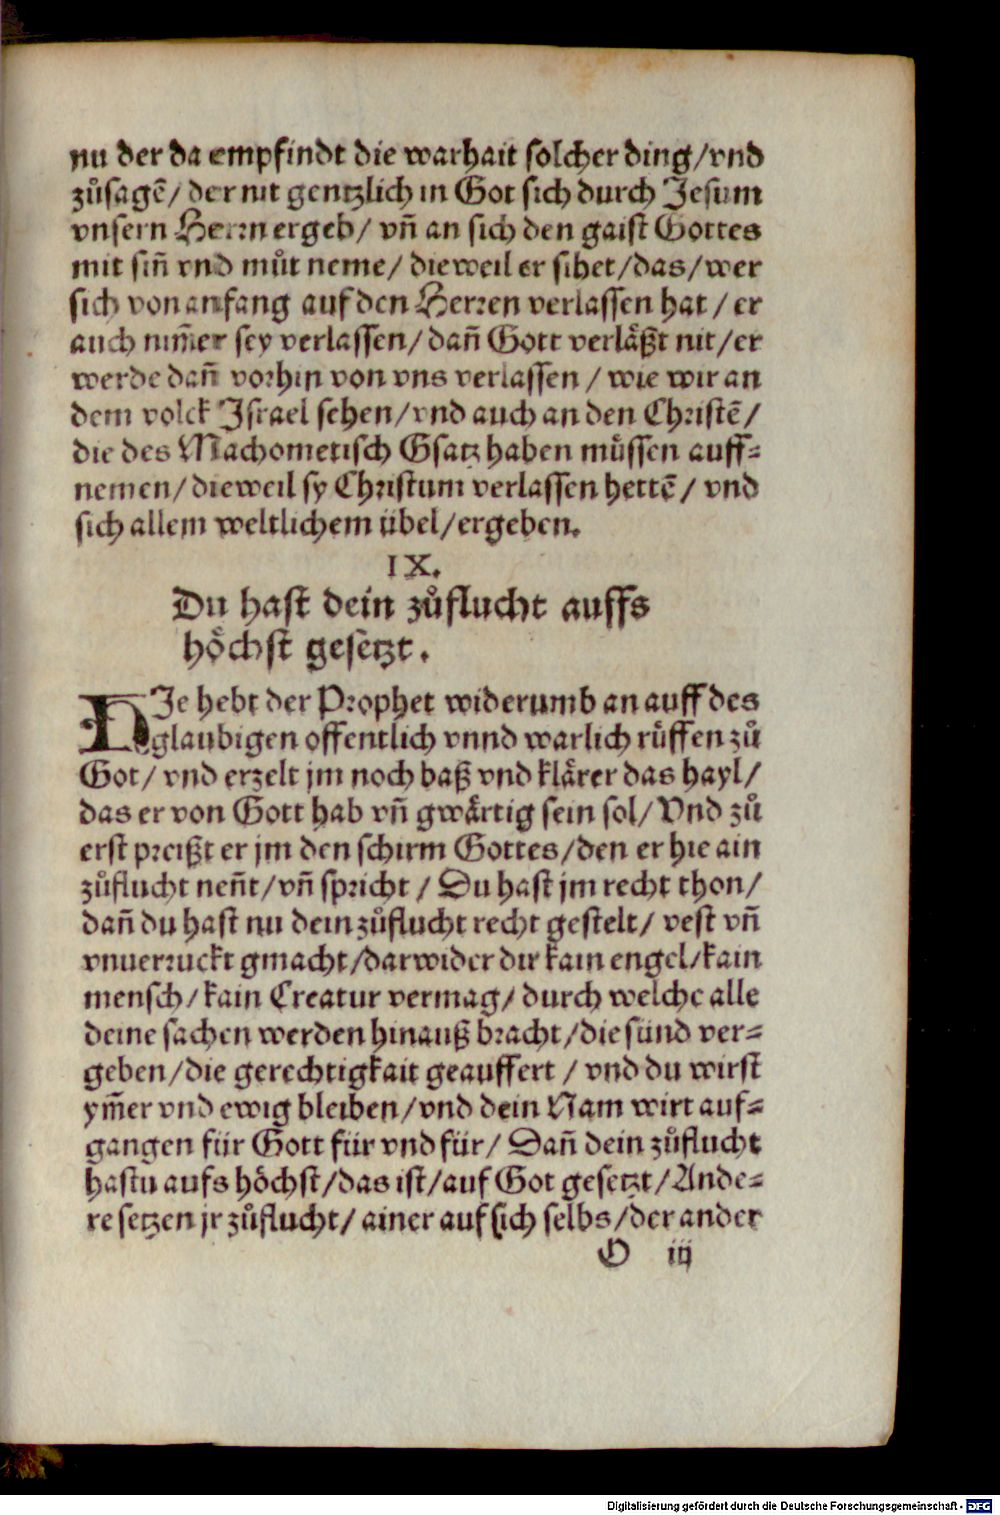 nu der da empfindt die warhait solcher ding/vnd
zůsagē/ der nit gentzlich in Got sich durch Jesum
vnsern Herrn ergeb/ vñ an sich den gaist Gottes
mit siñ vnd můt neme/ dieweil er sihet/das/wer
sich von anfang auf den Herren verlassen hat/ er
auch nim̄er sey verlassen/ dañ Gott verlåßt nit/er
werde dañ vorhin von vns verlassen/ wie wir an
dem volck Israel sehen/vnd auch an den Christē/
die des Machometisch Gsatz haben můssen auff-
nemen/ dieweil sy Christum verlassen hettē/ vnd
sich allem weltlichem übel/ergeben.
IX.
Du hast dein zůflucht auffs
höchst gesetzt.
DJe hebt der Prophet widerumb an auff des
glaubigen offentlich vnnd warlich růffen zů
Got/ vnd erzelt jm noch baß vnd klårer das hayl/
das er von Gott hab vñ gwårtig sein sol/ Vnd zů
erst preißt er jm den schirm Gottes/den er hie ain
zůflucht neñt/vñ spricht/ Du hast jm recht thon/
dañ du hast nu dein zůflucht recht gestelt/ vest vñ
vnuerruckt gmacht/darwider dir kain engel/kain
mensch/ kain Creatur vermag/ durch welche alle
deine sachen werden hinauß bracht/die sünd ver-
geben/die gerechtigkait geauffert/ vnd du wirst
ym̄er vnd ewig bleiben/vnd dein Nam wirt auf-
gangen für Gott für vnd für/ Dañ dein zůflucht
hastu aufs höchst/das ist/auf Got gesetzt/Ande-
re setzen jr zůflucht/ ainer auf sich selbs/der ander
O iij
Digitalisierung gefördert durch die Deutsche Forschungsgemeinschaft - DFG